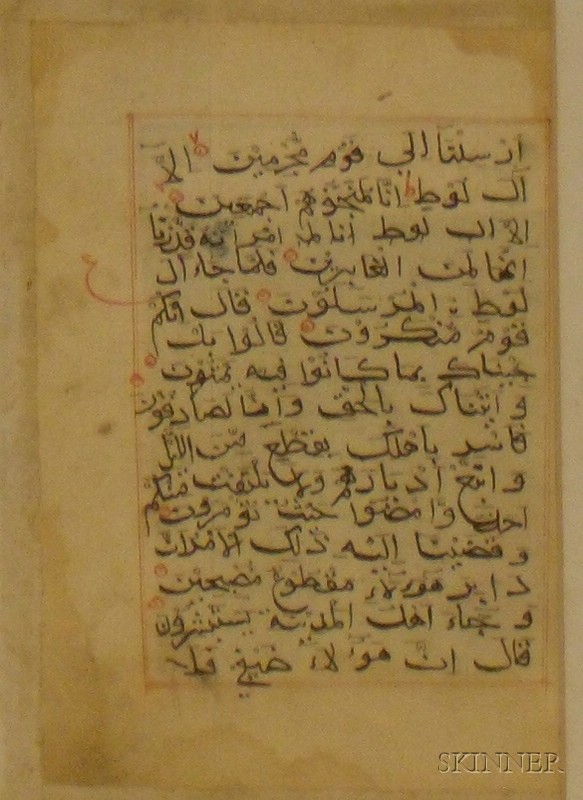 ارسلنا الي قوم مجرمين الا
ال لوط انا لمنجوهم اجمعين
الا ال لوط انا لم امراته قدرنا
انها لمن الغابرين فلما جاء ال
لوط المرسلون قال انكم
قوم منكرون قالوا بل
جيناك بما كانوا فيه يمترون
واتيناك بالحق وانا لصادقون
فاسر باهلك بقطع من الليل
واتبع ادبارهم ولا يلتفت منكم
احد وامضوا حيث تومرون
وقضينا اليه ذلك الامر ان
دابر هولاء مقطوع مصبحين
وجاء اهل المدينة يستبشرون
قال ان هولاء ضيفي فلا
SKINNER